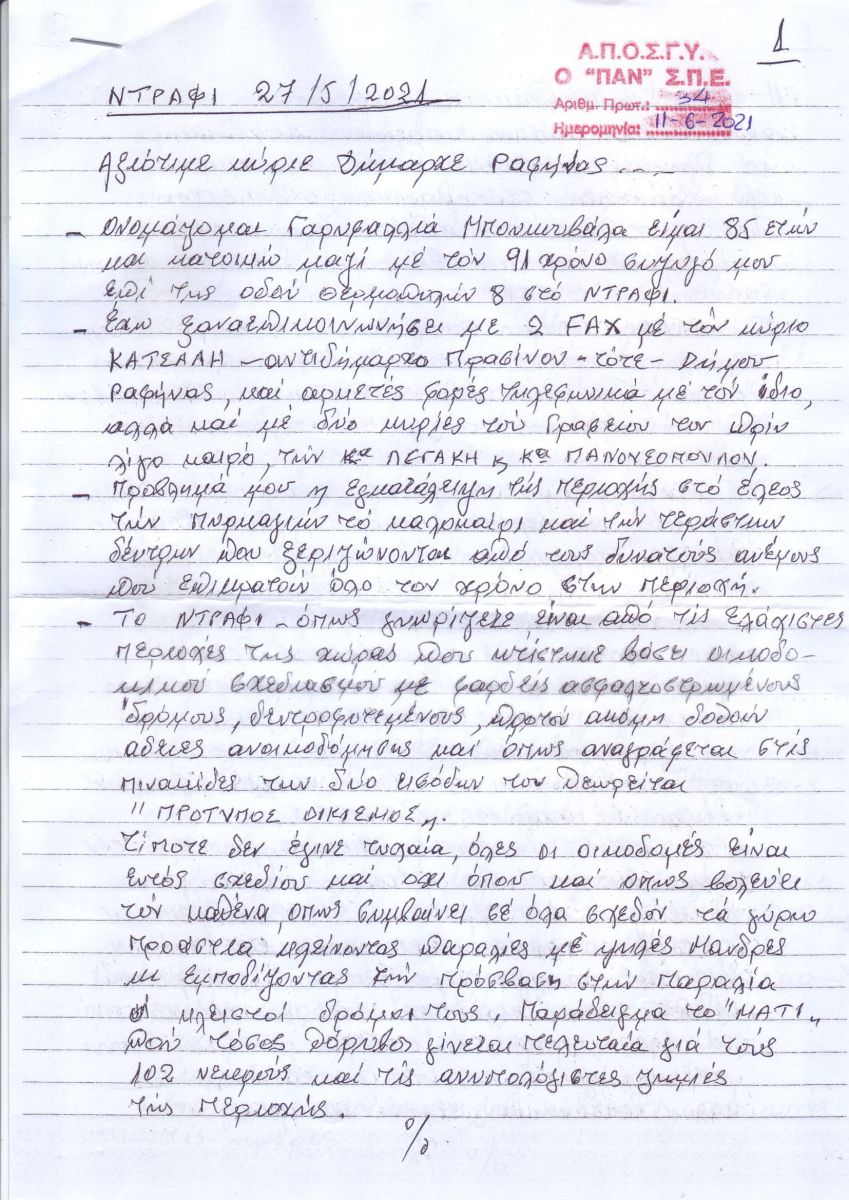 1
Α.Π.Ο.Σ.Γ.Υ.
Ο "ΠΑΝ" Σ.Π.Ε.
Αριθμ. Πρωτ.: 34
Ημερομηνία: 11-6-2021
ΝΤΡΑΦΙ 27/5/2021
Αξιότιμε κύριε Δήμαρχε Ραφήνας ....
- Ονομάζομαι Γαρυφαλλιά Μπουκουβάλα είμαι 85 ετών
και κατοικώ μαζί με τόν 91 χρόνο συζυγό μου
επί της οδού Θερμοπυλών 8 στό ΝΤΡΑΦΙ.
- Έχω ξαναεπικοινωνήσει με 2 FAX με τόν κύριο
ΚΑΤΣΑΛΗ - αντιδήμαρχο Πρασίνου - τότε - Δήμου
Ραφήνας, καί αρκετές φορές τηλεφωνικά με τόν ίδιο,
αλλά καί με δύο κυρίες τού Γραφείου του πρίν
λίγο καιρό, τήν κα ΛΕΓΑΚΗ κ κα ΠΑΝΟΥΣΟΠΟΥΛΟΥ.
- Πρόβλημά μου η εγκατάλειψη τής περιοχής στό έλεος
τών πυρκαγιών τό καλοκαίρι καί τών τεράστιων
δέντρων πού ξεριζώνονται από τους δυνατούς ανέμους
πού επικρατούν όλο τον χρόνο στην περιοχή.
- Το ΝΤΡΑΦΙ - όπως γνωρίζετε, είναι από τίς ελάχιστες
περιοχές της χώρας που κτίστηκε βάσει οικοδο-
μικού σχεδιασμού με φαρδείς ασφαλτοστρωμένους
δρόμους, δεντροφυτεμένους, προτού ακόμη δοθούν
αδειες ανοικοδόμησης καί όπως αναγράφεται στίς
πινακίδες των δύο εισόδων του θεωρείται
"ΠΡΟΤΥΠΟΣ ΟΙΚΙΣΜΟΣ".
Τίποτε δεν έγινε τυχαία, όλες οι οικοδομές είναι
εντός σχεδίου καί οχι όπου καί όπως βολεύει
τόν καθένα, όπως συμβαίνει σέ όλα σχεδόν τά γύρω
προάστια κλείνοντας παραλίες με ψηλές μάνδρες
κι εμποδίζοντας τήν πρόσβαση στήν παραλία
οί κλειστοί δρόμοι τους. Παράδειγμα το "ΜΑΤΙ"
πού τόσος θόρυβος γίνεται τελευταία γιά τούς
102 νεκρούς καί τίς ανυπολόγιστες ζημιές
τής περιοχής.
%